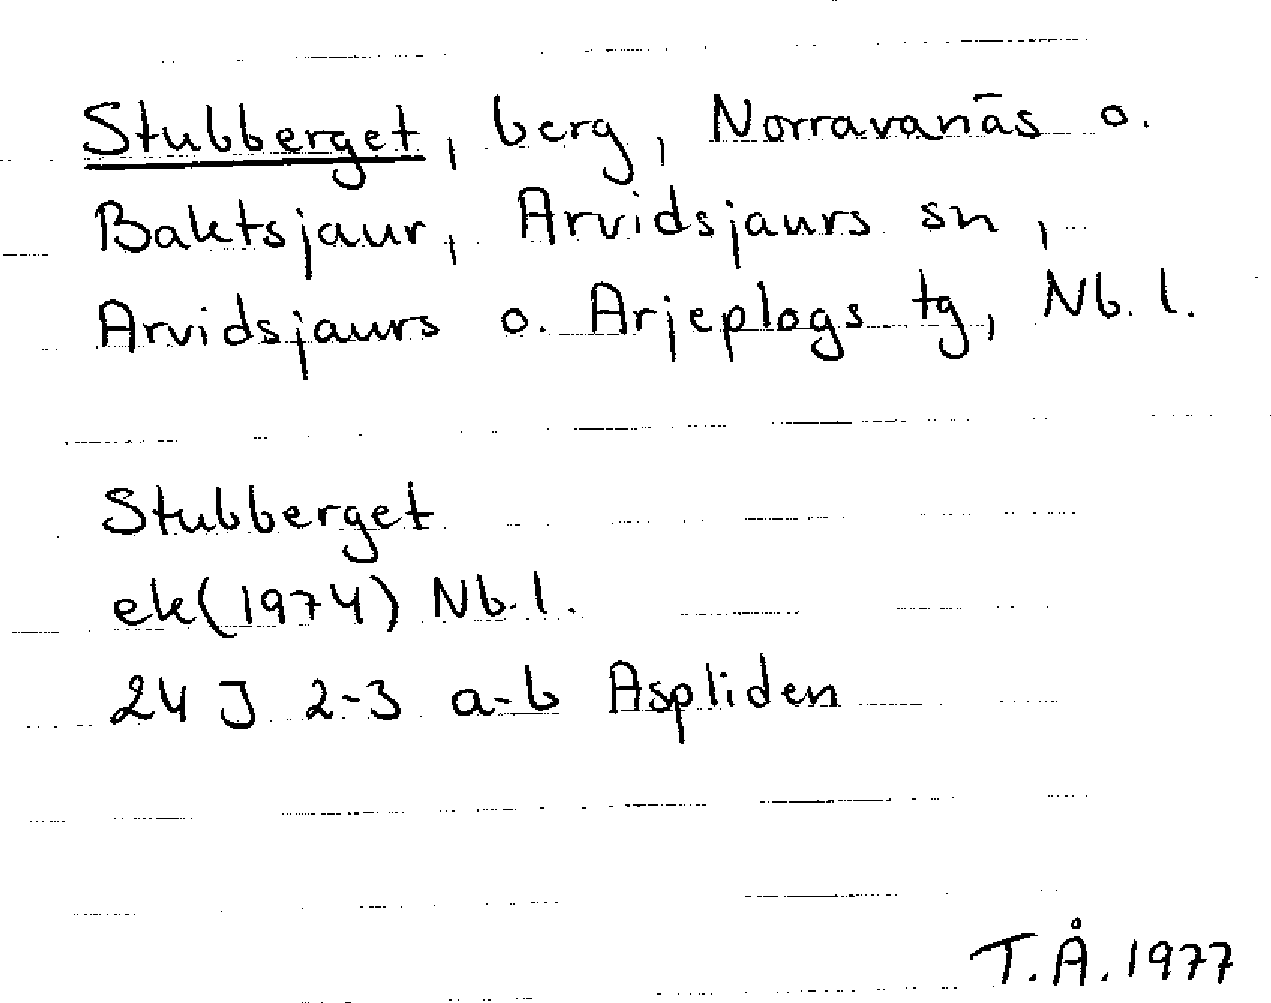 Stubberget, berg, Norravanäs o.
Baktsjaur, Arvidsjaurs sn,
Arvidsjaurs o. Arjeplogs tg, Nb. l.
Stubberget
ek(1974) Nb. l.
24 J 2-3 a-b Aspliden
T.Å. 1977